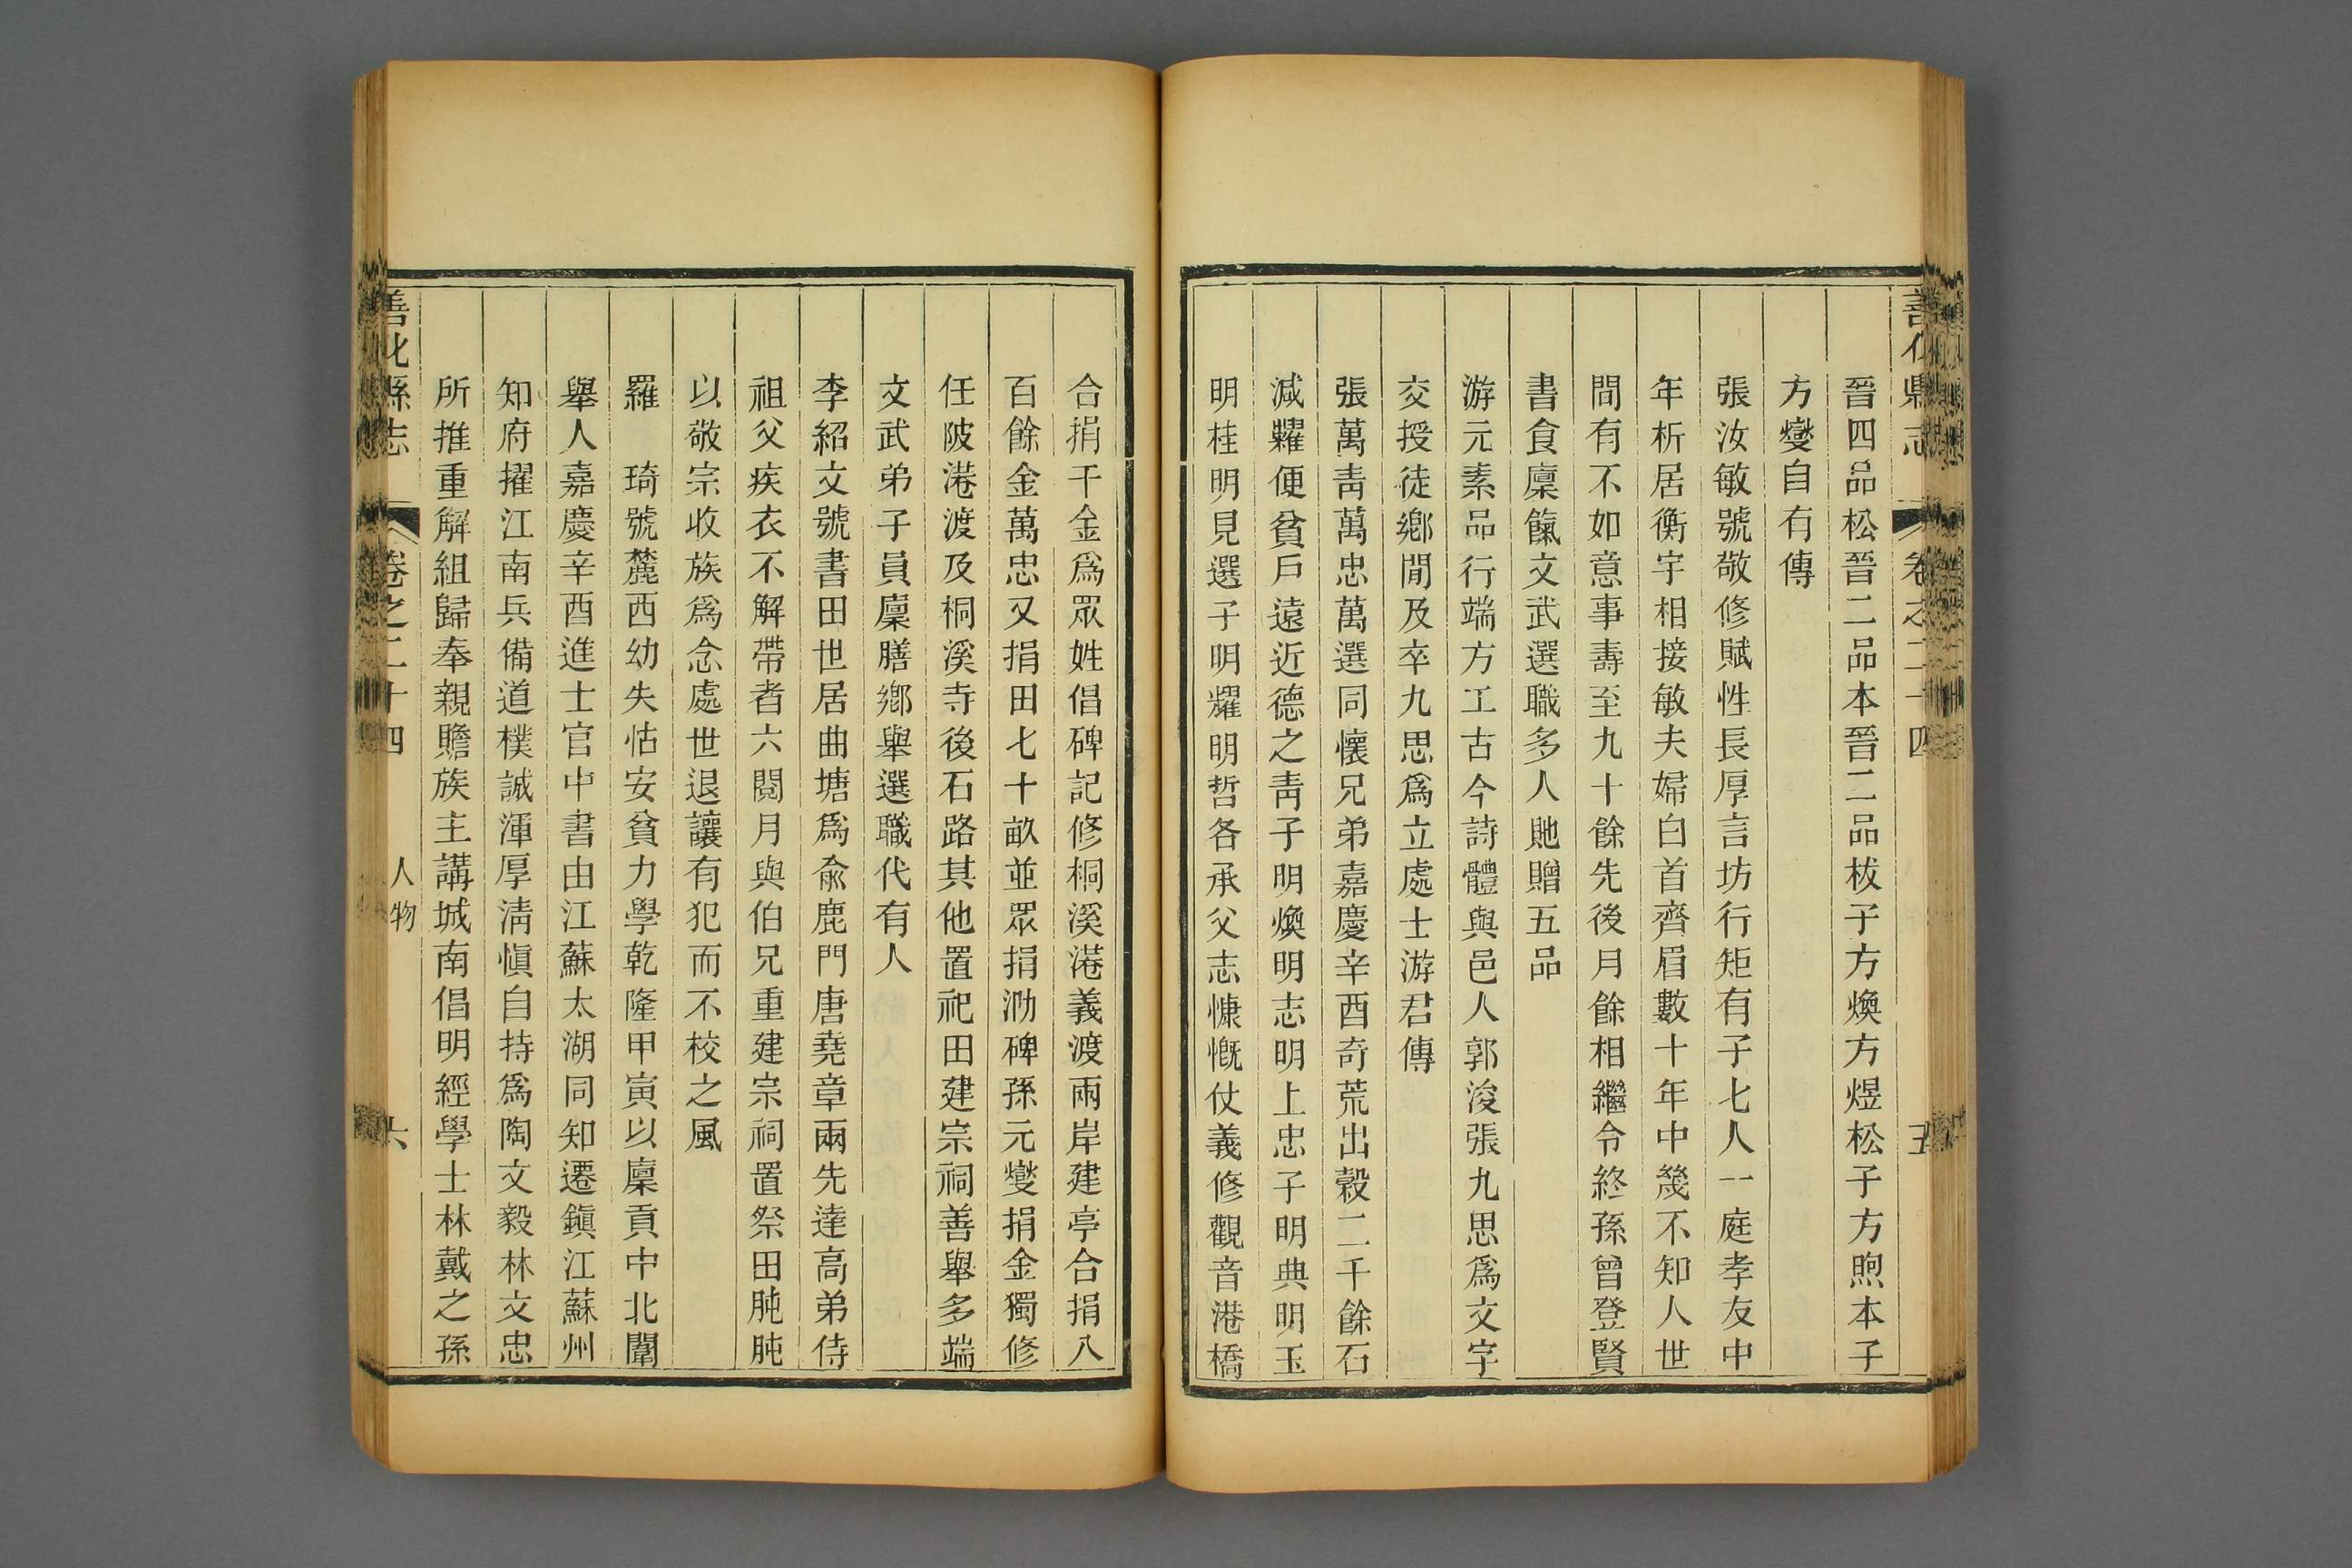 善化縣志 卷之二十四 五
晉四品松晉二品本晉二品核子方煥方煜松子方煦本子
方燮自有傳
張汝敏號敬修賦性長厚言坊行矩有子七人一庭孝友中
年析居衡宇相接敏夫婦白首齊眉數十年中幾不知人世
間有不如意事壽至九十餘先後月餘相繼令終孫曾登賢
書食廩餼文武選職多人貤贈五品
游元素品行端方工古今詩體與邑人郭浚張九思爲文字
交授徒鄉閒及卒九思爲立處士游君傳
張萬青萬忠萬選同懷兄弟嘉慶辛酉奇荒出穀二千餘石
減糶便貧戶遠近德之青子明煥明志明上忠子明典明玉
明桂明見選子明耀明哲各承父志慷慨仗義修觀音港橋
合捐千金爲眾姓倡碑記修桐溪港義渡兩岸建亭合捐八
百餘金萬忠又捐田七十畝並眾捐泐碑孫元燮捐金獨修
任陂港渡及桐溪寺後石路其他置祀田建宗祠善舉多端
文武弟子員廩膳鄉舉選職代有人
李紹文號書田世居曲塘爲兪鹿門唐堯章兩先達高弟侍
祖父疾衣不解帶者六閱月與伯兄重建宗祠置祭田肫肫
以敬宗收族爲念處世退讓有犯而不校之風
羅 琦號麓西幼失怙安貧力學乾隆甲寅以廩貢中北闈
舉人嘉慶辛酉進士官中書由江蘇太湖同知遷鎮江蘇州
知府擢江南兵備道樸誠渾厚清愼自持爲陶文毅林文忠
所推重解組歸奉親贍族主講城南倡明經學士林戴之孫
善化縣志 卷之二十四 人物 六